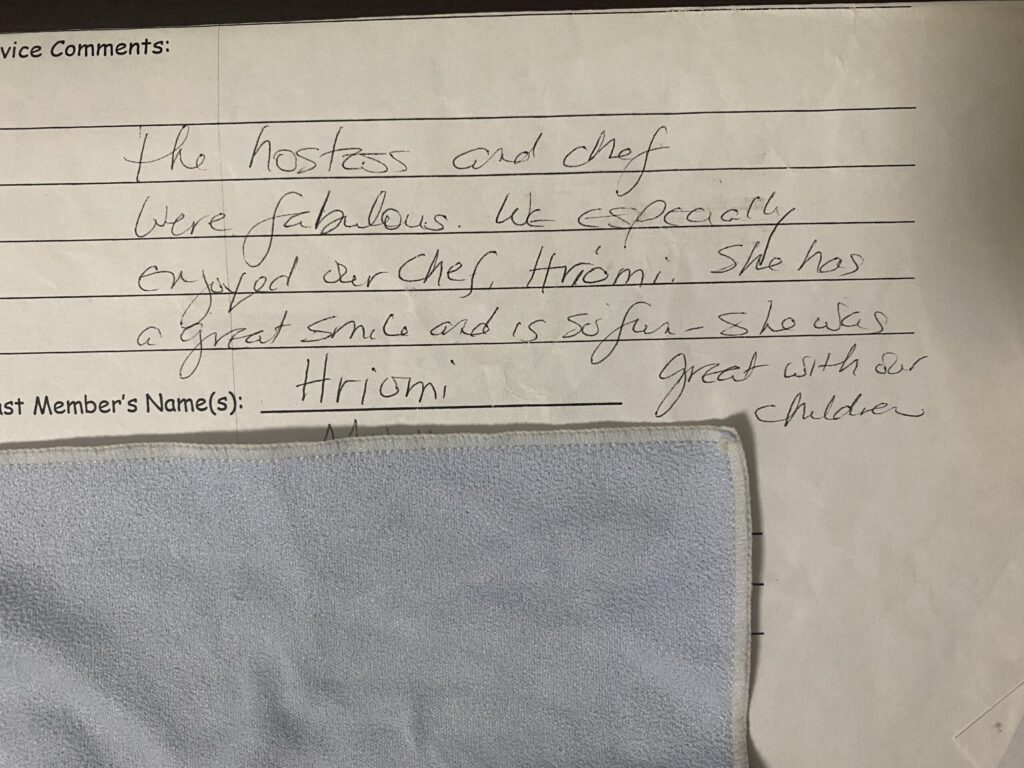 vice Comments:
the hostess and chef
were fabulous. We especially
enjoyed our Chef, Hriomi. She has
a great smile and is so fun - she was
great with our
children
ast Member's Name(s): Hriomi